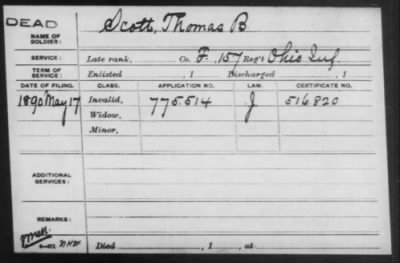 DEAD
NAME OF SOLDIER: Scott, Thomas B
SERVICE: Late rank, Co. F, 157 Reg't Ohio Inf.
TERM OF SERVICE: Enlisted , 1 Discharged , 1
DATE OF FILING. CLASS. APPLICATION NO. LAW. CERTIFICATE NO.
1890 May 17 Invalid, 775.514 J 516820
Widow,
Minor,
ADDITIONAL SERVICES:
REMARKS:
Died , 1 , at